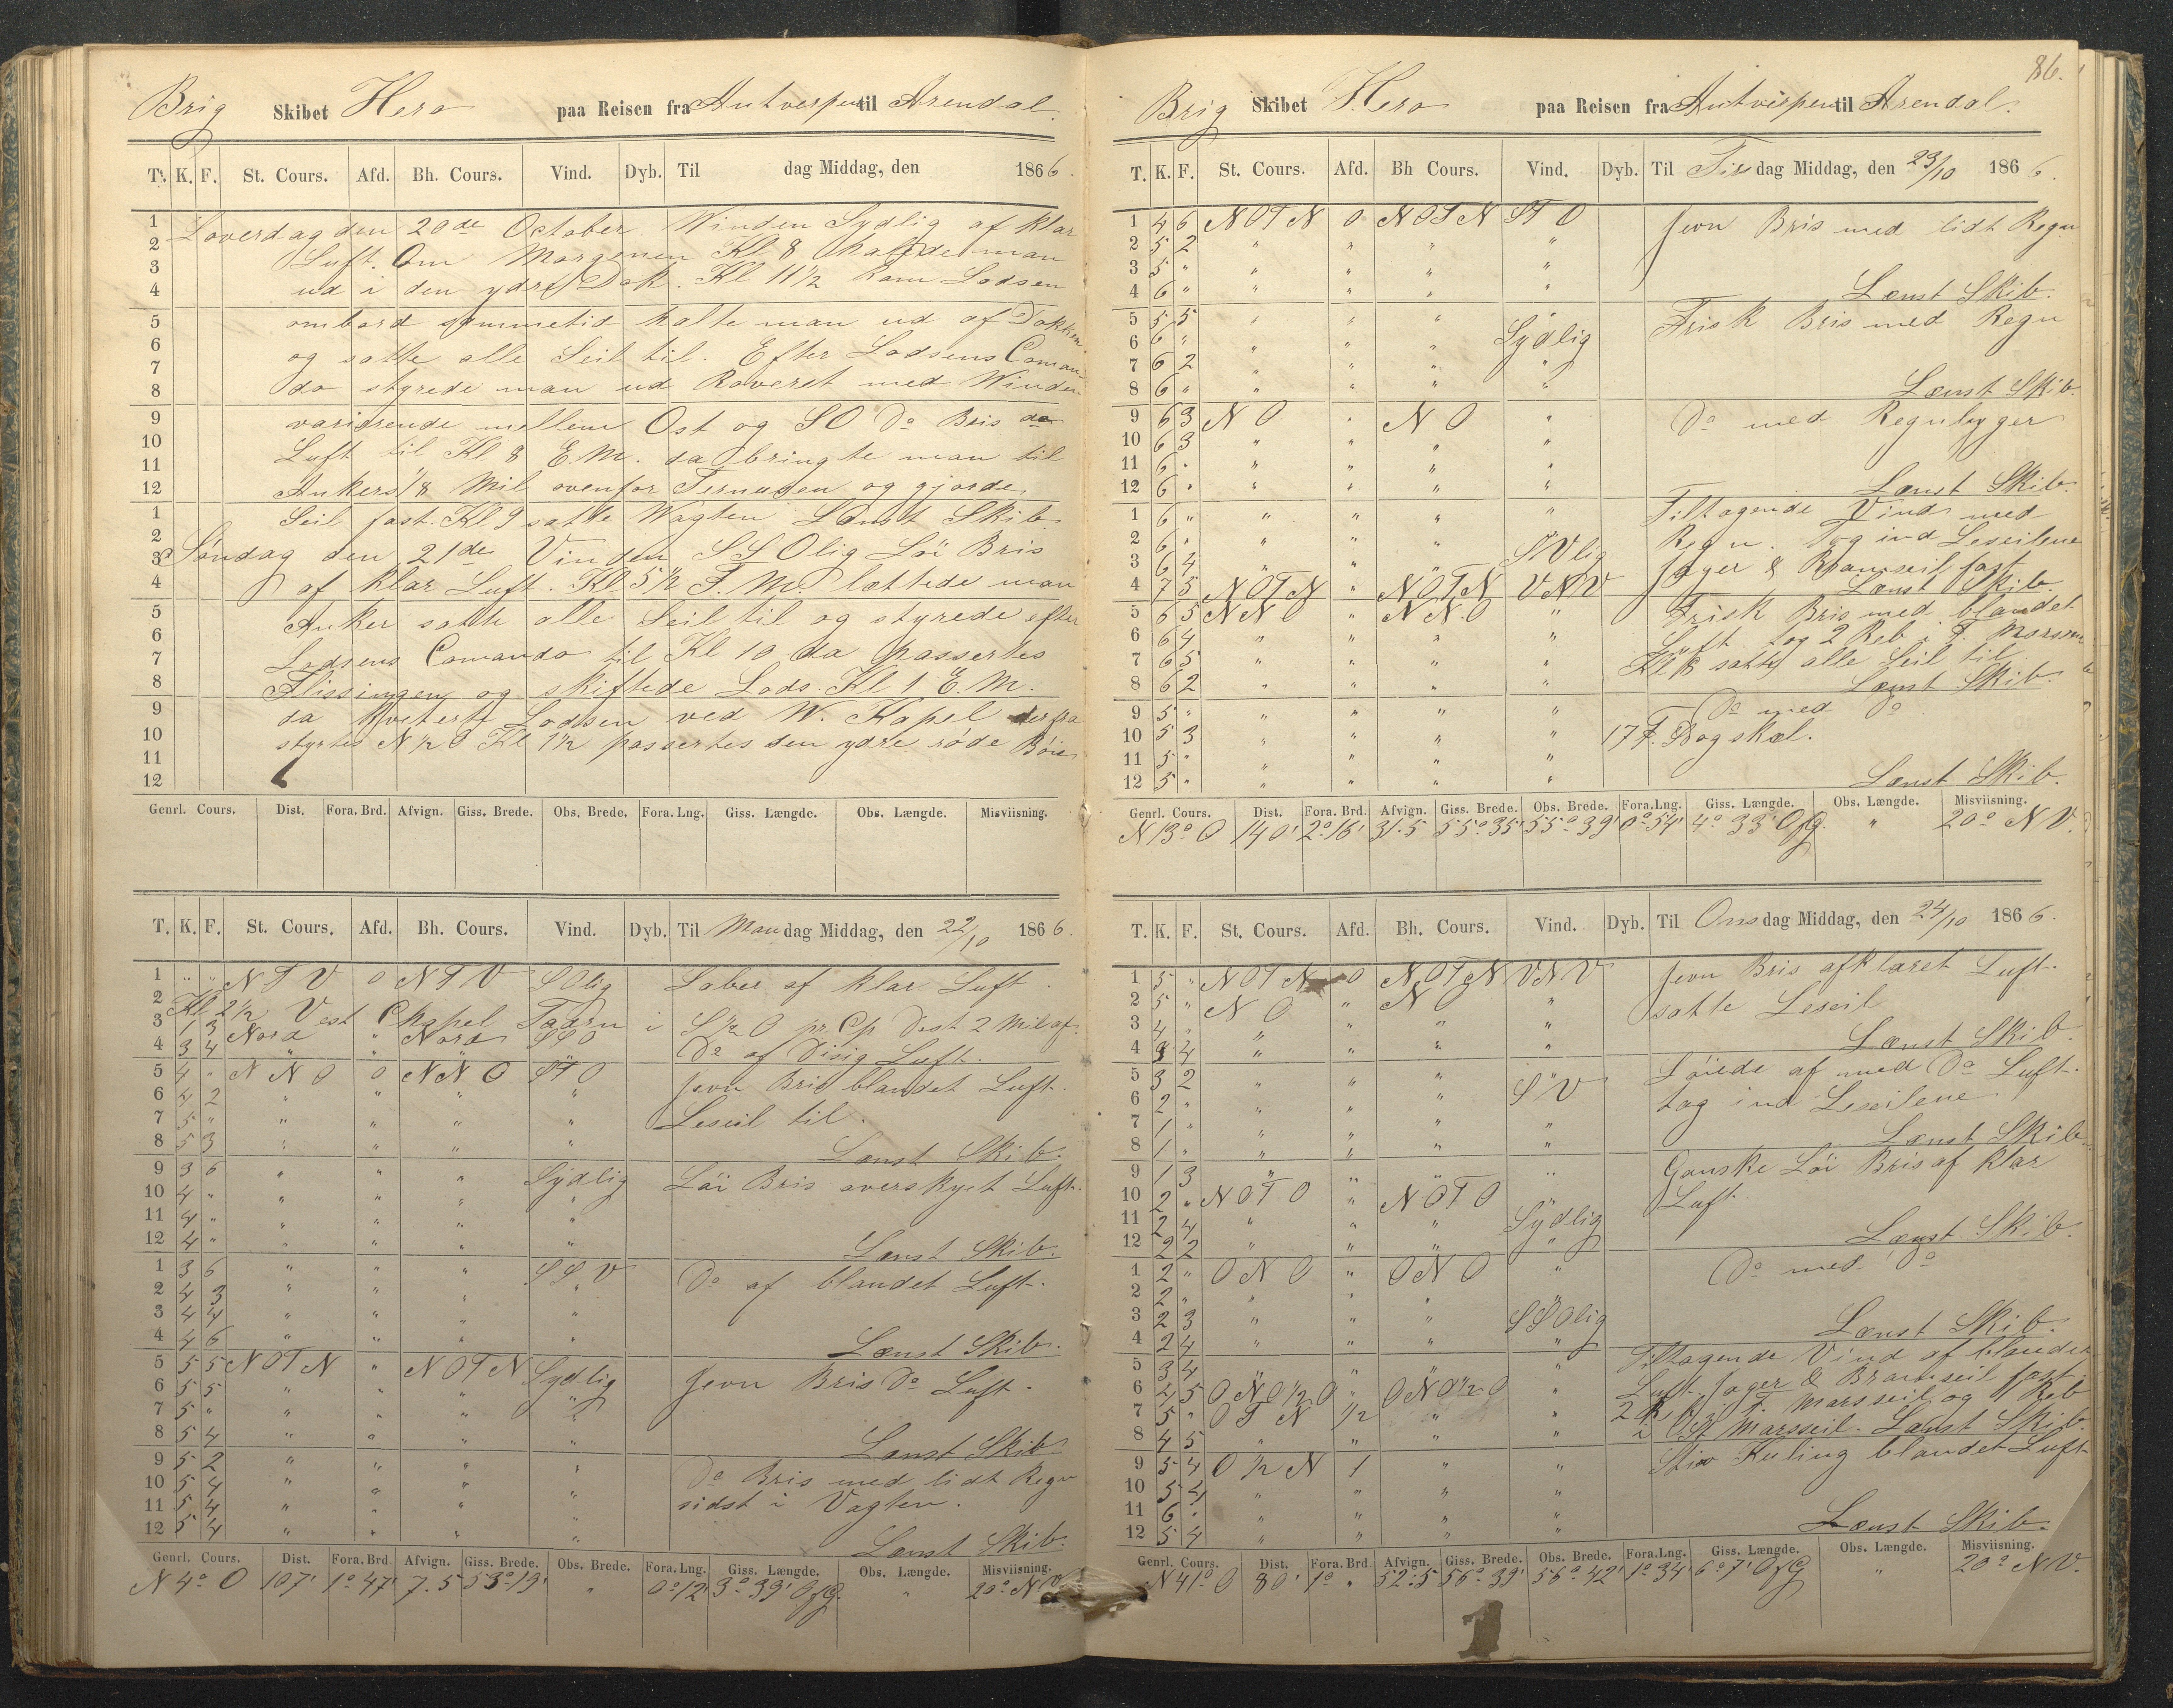 Brig Skibet Hero paa Reisen fra Antverpen til Arendal.
T. K. F. St. Cours. Afd. Bh. Cours. Vind. Dyb. Til dag Middag, den 1866.
1 Løverdag den 20de October. Winden Sydlig af klar
2 Luft. Om Morgenen Kl 8 halede man
3 ud i den ydre Dok. Kl 11½ kom Lodsen
4 ombord sammetid halte man ud af Dokken
5 og satte alle Seil til. Efter Lodsens Coman-
6 do styrede man ud Raveret med Winden
7 varierende mellem Ost og SO Do Bris do
8 Luft til Kl 8 E.M. da bringte man til
9 Ankers 1/8 Mil ovenfor Ternusen og gjorde
10 Seil fast. Kl 9 satte Wagten Lænst Skib
11 Søndag den 21de Vinden SSOlig Löi Bris
12 af klar Luft. Kl 5½ F.M. lættede man
1 Anker satte alle Seil til og styrede efter
2 Lodsens Comando til Kl 10 da passertes
3 Flissingen og skiftede Lods. Kl 1 E.M.
4 da kviterte Lodsen ved W. Kapel derfra
5 styrtes N½O Kl 1½ passertes den ydre røde Böie
6
7
8
9
10
11
12
Genrl. Cours. Dist. Fora. Brd. Afvign. Giss. Brede. Obs. Brede. Fora. Lng. Giss. Længde. Obs. Længde. Misviisning.
T. K. F. St. Cours. Afd. Bh. Cours. Vind. Dyb. Til Mandag Middag, den 22/10 1866.
1 " " NTV 0 NTV SOlig Laber af klar Luft.
2 Kl 2½ Vest Chapel Taarn i S½O pr. Cp Dist 2 Mil af.
3 1 3 Nord " Nord SSO
4 3 4 " " " Do af Disig Luft.
5 4 " NNO 0 NNO STO Jevn Bris blandet Luft.
6 4 2 " " " " Leseil til.
7 5 " " " " "
8 5 3 " " " " Lænst Skib.
9 3 6 " " " Sydlig Löi Bris overskyet Luft.
10 4 " " " " "
11 4 " " " " "
12 4 " " " " " Lænst Skib.
1 3 6 " " " SSV Do af blandet Luft.
2 4 3 " " " "
3 4 4 " " " "
4 4 6 " " " " Lænst Skib.
5 5 5 NOTN " NOTN Sydlig Jevn Bris Do Luft.
6 5 5 " " " "
7 5 " " " " "
8 5 4 " " " " Lænst Skib
9 5 2 " " " " Do Bris med lidt Regn
10 5 4 " " " " sidst i Vagten.
11 5 4 " " "
12 5 4 " " " " Lænst Skib.
Genrl. Cours. Dist. Fora. Brd. Afvign. Giss. Brede. Obs. Brede. Fora. Lng. Giss. Længde. Obs. Længde. Misviisning.
N 4° O 107' 1° 47' 7.5 53° 19' " 0° 12' 3° 39' OfG. " 20° NV.
86.
Brig Skibet Hero paa Reisen fra Antverpen til Arendal.
T. K. F. St. Cours. Afd. Bh Cours. Vind. Dyb. Til Tirsdag Middag, den 23/10 1866.
1 4 6 NOTN 0 NOTN STO Jevn Bris med lidt Regn
2 5 2 " " " "
3 5 " " " " "
4 6 " " " " " Lænst Skib.
5 5 5 " " " " Frisk Bris med Regn
6 6 " " " " Sydlig
7 6 2 " " " "
8 6 " " " " " Lænst Skib.
9 6 3 NO " NO " Do med Regnbyger
10 6 3 " " " "
11 6 " " " " "
12 6 " " " " " Lænst Skib.
1 6 " " " " " Tiltagende Vind med
2 6 " " " " Regn. Tog ind Leseilene
3 6 4 " " " SVlig Jager & Bramseil fast
4 7 5 NOTN " NOTN VNV Lænst Skib.
5 6 5 NNO " NNO " Frisk Bris med blandet
6 6 4 " " " " Luft tog 2 Reb i F. Marsseil
7 6 5 " " " " Kl 8 satte alle Seil til
8 6 2 " " " " Lænst Skib.
9 5 " " " " " Do med Do
10 5 3 " " " " 17 F. Bogskæl.
11 5 " " " " "
12 5 " " " " " Lænst Skib.
Genrl. Cours. Dist. Fora. Brd. Afvign. Giss. Brede. Obs. Brede. Fora. Lng. Giss. Længde. Obs. Længde. Misviisning.
N 13° O 140' 2° 16' 31.5 55° 35' 55° 39' 0° 54' 4° 33' OfG. " 20° NV.
T. K. F. St. Cours. Afd. Bh. Cours. Vind. Dyb. Til Onsdag Middag, den 24/10 1866.
1 5 " NOTN 0 NOTN VNV Jevn Bris afklaret Luft.
2 5 " NO " NO " satte Leseil
3 4 " " " " "
4 3 4 " " " " Lænst Skib.
5 3 2 " " " " Löiede af med Do Luft.
6 2 " " " " SV tog ind Leseilene.
7 1 " " " " "
8 1 " " " " " Lænst Skib.
9 1 3 " " " " Ganske Löi Bris af klar
10 2 " NOTO " NOTO Luft.
11 2 4 " " " Sydlig
12 2 2 " " " " Lænst Skib.
1 2 " ONO " ONO " Do med Do
2 2 " " " " "
3 2 3 " " " SSOlig
4 2 4 " " " " Lænst Skib.
5 3 4 " " " " Tiltagende Vind af blandet
6 4 5 ONO½O " ONO½O " Luft. Jager & Bramseil fast.
7 5 " OTN ½ " " 2 R. i F. Marsseil og 1 Reb
8 4 5 " " " " i St Marsseil. Lænst Skib.
9 5 4 O½N 1 " " Stiv Kuling blandet Luft
10 5 4 " " " "
11 6 " " " " "
12 5 4 " " " " Lænst Skib.
Genrl. Cours. Dist. Fora. Brd. Afvign. Giss. Brede. Obs. Brede. Fora. Lng. Giss. Længde. Obs. Længde. Misviisning.
N 41° O 80' 1° " 52.5 56° 39' 56° 42' 1° 34' 6° 7' OfG " 20° NV.